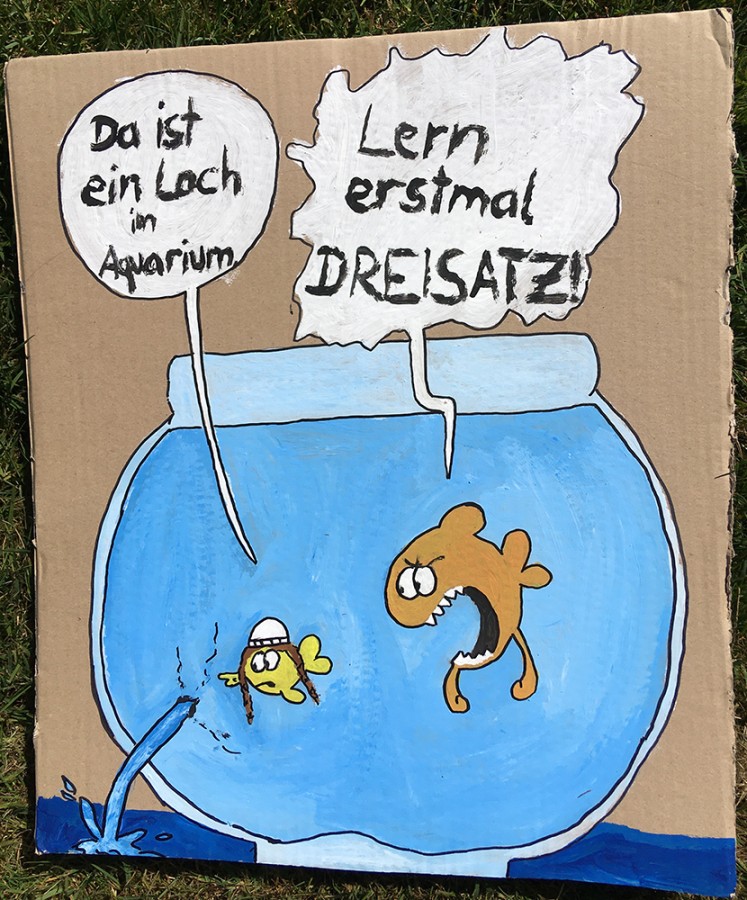 Da ist
ein Loch
im
Aquarium
Lern
erstmal
DREISATZ!